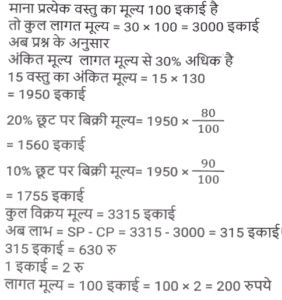 माना प्रत्येक वस्तु का मूल्य 100 इकाई है
तो कुल लागत मूल्य = 30 × 100 = 3000 इकाई
अब प्रश्न के अनुसार
अंकित मूल्य लागत मूल्य से 30% अधिक है
15 वस्तु का अंकित मूल्य = 15 × 130
= 1950 इकाई
20% छूट पर बिक्री मूल्य= 1950 × 80/100
= 1560 इकाई
10% छूट पर बिक्री मूल्य= 1950 × 90/100
= 1755 इकाई
कुल विक्रय मूल्य = 3315 इकाई
अब लाभ = SP - CP = 3315 - 3000 = 315 इकाई
315 इकाई = 630 रु
1 इकाई = 2 रु
लागत मूल्य = 100 इकाई = 100 × 2 = 200 रुपये